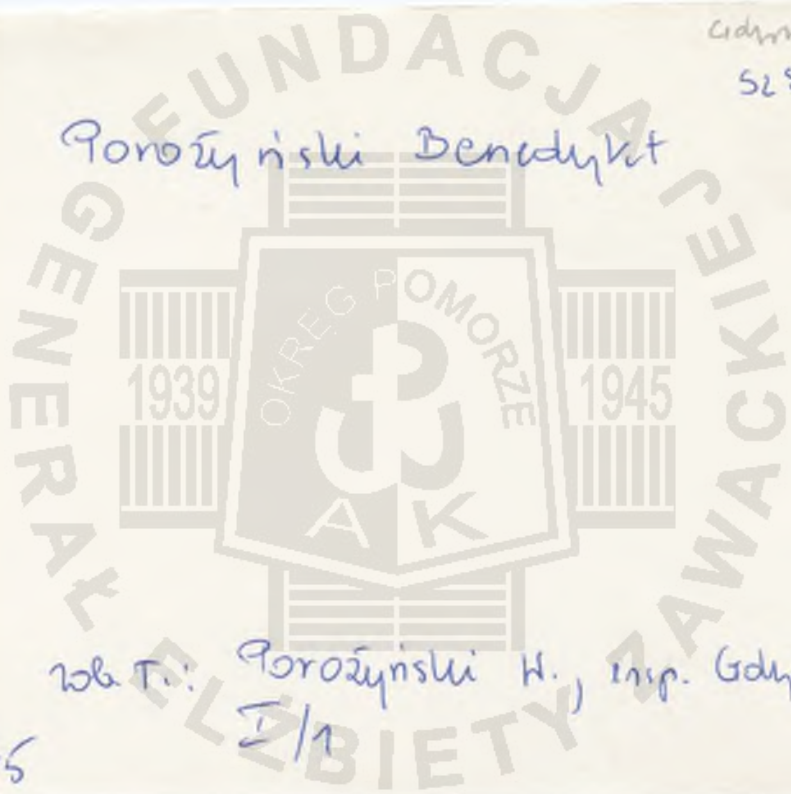 Gdyn
SzS
Porożyński Benedykt
FUNDACJA GENERAŁ ELŻBIETY ZAWACKIEJ
OKRĘG POMORZE
1939 1945
A K
zob. T.: Porożyński W., insp. Gdy
I/1
5